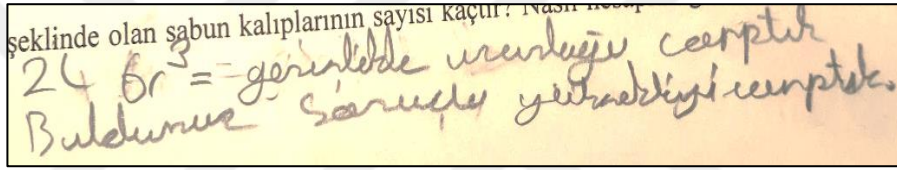 şeklinde olan sabun kalıplarının sayısı kaçtır? Nasıl
24 6r³ = genişlikle uzunluğu çarptık
Bulduğumuz sonuçla yüksekliği çarptık.